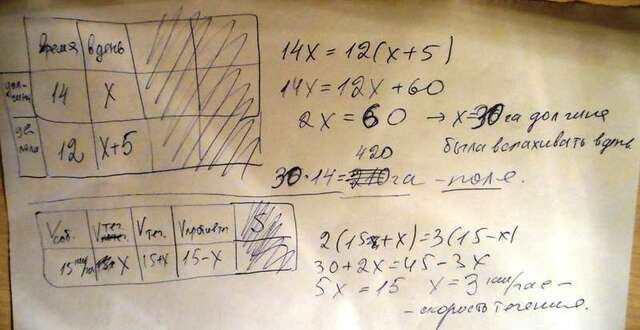 время в день
долж- 14 x
де- лала 12 x+5
14x=12(x+5)
14x=12x+60
2x=60 → x=30 га должна
была вспахивать в день
420
30·14= га - поля.
Vсоб. Vтеч. Vпротив S
15 км/ч x 15+x 15-x
2(15+x)=3(15-x)
30+2x=45-3x
5x=15 x=3 км/час -
- скорость течения.